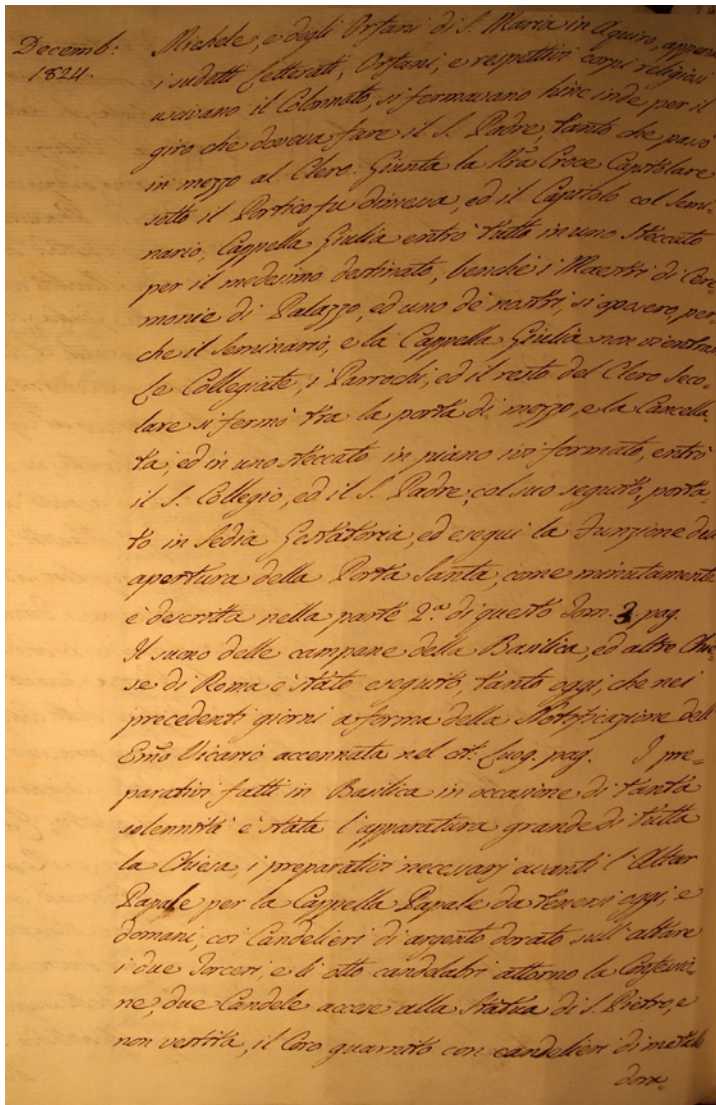 Decemb:
1824.
Michele, e degli Orfani di S. Maria in Aquiro, appena
i sudetti Letterati, Orfani, e respettivi corpi religiosi
uscivano il Colonnato, si fermavano hinc inde per il
giro che doveva fare il S. Padre, tanto che passò
in mezzo al Clero. Giunta la Nra Croce Capitolare
sotto il Portico fu dimessa, ed il Capitolo col Semi=
nario, Cappella Giulia entrò tutto in uno steccato
per il medesimo destinato, benchè i Maestri di Cere=
monie di Palazzo, ed uno de nostri, si oposero, per=
che il Seminario, e la Cappella Giulia non vi entras
Le Collegiate, i Parrochi, ed il resto del Clero Seco=
lare si fermò tra la porta di mezzo, e la Cancella=
ta, ed in uno steccato in piano ivi formato, entrò
il S. Collegio, ed il S. Padre, col suo seguito, porta=
to in Sedia Gestatoria, ed eseguì la Funzione dell
apertura della Porta Santa, come minutamente
è descritta nella parte 2.a di questo Tom. 3. pag.
Il suono delle campane della Basilica, ed altre Chie=
se di Roma è stato eseguito, tanto oggi, che nei
precedenti giorni a forma della Notificazione dell
Emo Vicario accennata nel cit: luog. pag. I pre=
parativi fatti in Basilica in occasione di tanta
solennità è stata l'apparatura grande di tutta
la Chiesa, i preparativi necessarj avanti l'Altar
Papale per la Cappella Papale da tenersi oggi, e
domani, coi Candelieri di argento dorato sull'altare
i due Torceri, e li otto candelabri attorno la Confessio=
ne, due Candele accese alla Statua di S. Pietro, e
non vestita, il Coro guarnito con candelieri di metallo
dora=